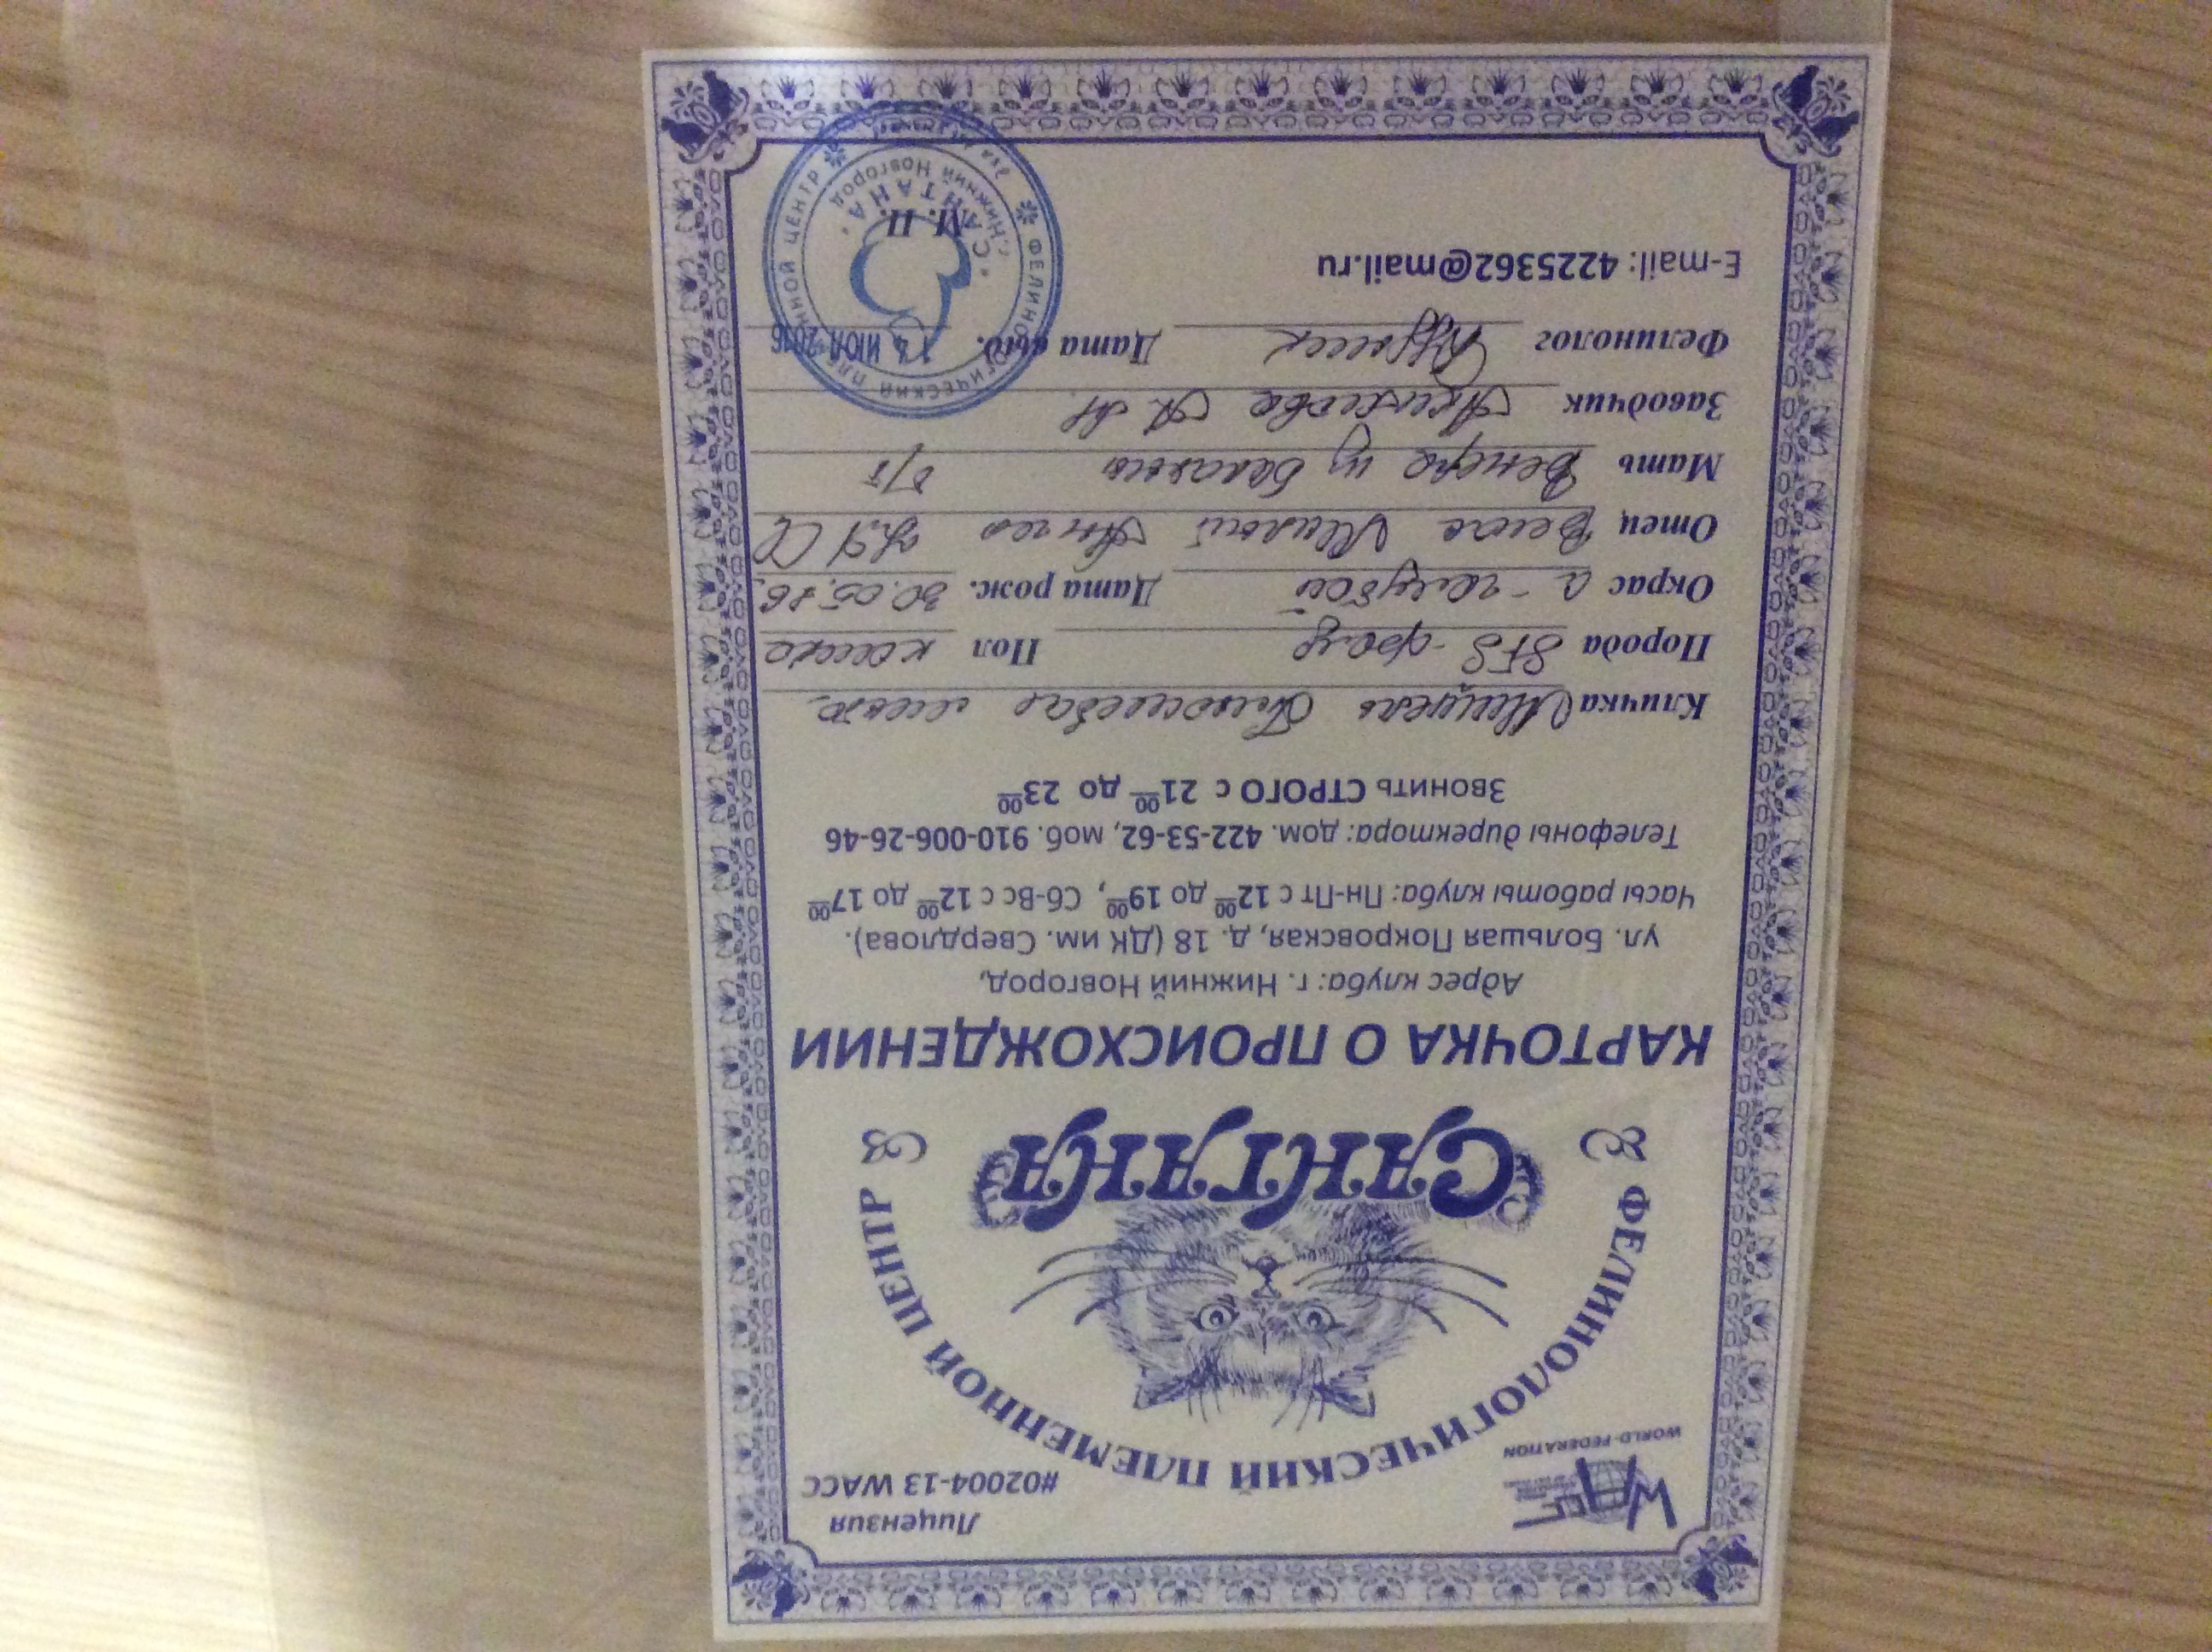 Лицензия
#02004-13 WACC
WORLD-FEDERATION
ФЕЛИНОЛОГИЧЕСКИЙ ПЛЕМЕННОЙ ЦЕНТР
САНТАНА
КАРТОЧКА О ПРОИСХОЖДЕНИИ
Адрес клуба: г. Нижний Новгород,
ул. Большая Покровская, д. 18 (ДК им. Свердлова).
Часы работы клуба: Пн-Пт с 12⁰⁰ до 19⁰⁰, Сб-Вс с 12⁰⁰ до 17⁰⁰
Телефоны директора: дом. 422-53-62, моб. 910-006-26-46
ЗВОНИТЬ СТРОГО с 21⁰⁰ до 23⁰⁰
Кличка Мишель Плюшевая
Порода SFS-фолд Пол кошка
Окрас a - голубой Дата рож. 30.05.16
Отец Милый
Мать Венера из б/т
Заводчик А.М
Фелинолог Дата выд. 13 ИЮЛ 2016
E-mail: 4225362@mail.ru
М. П.
ФЕЛИНОЛОГИЧЕСКИЙ ПЛЕМЕННОЙ ЦЕНТР
"САНТАНА"
г. Нижний Новгород